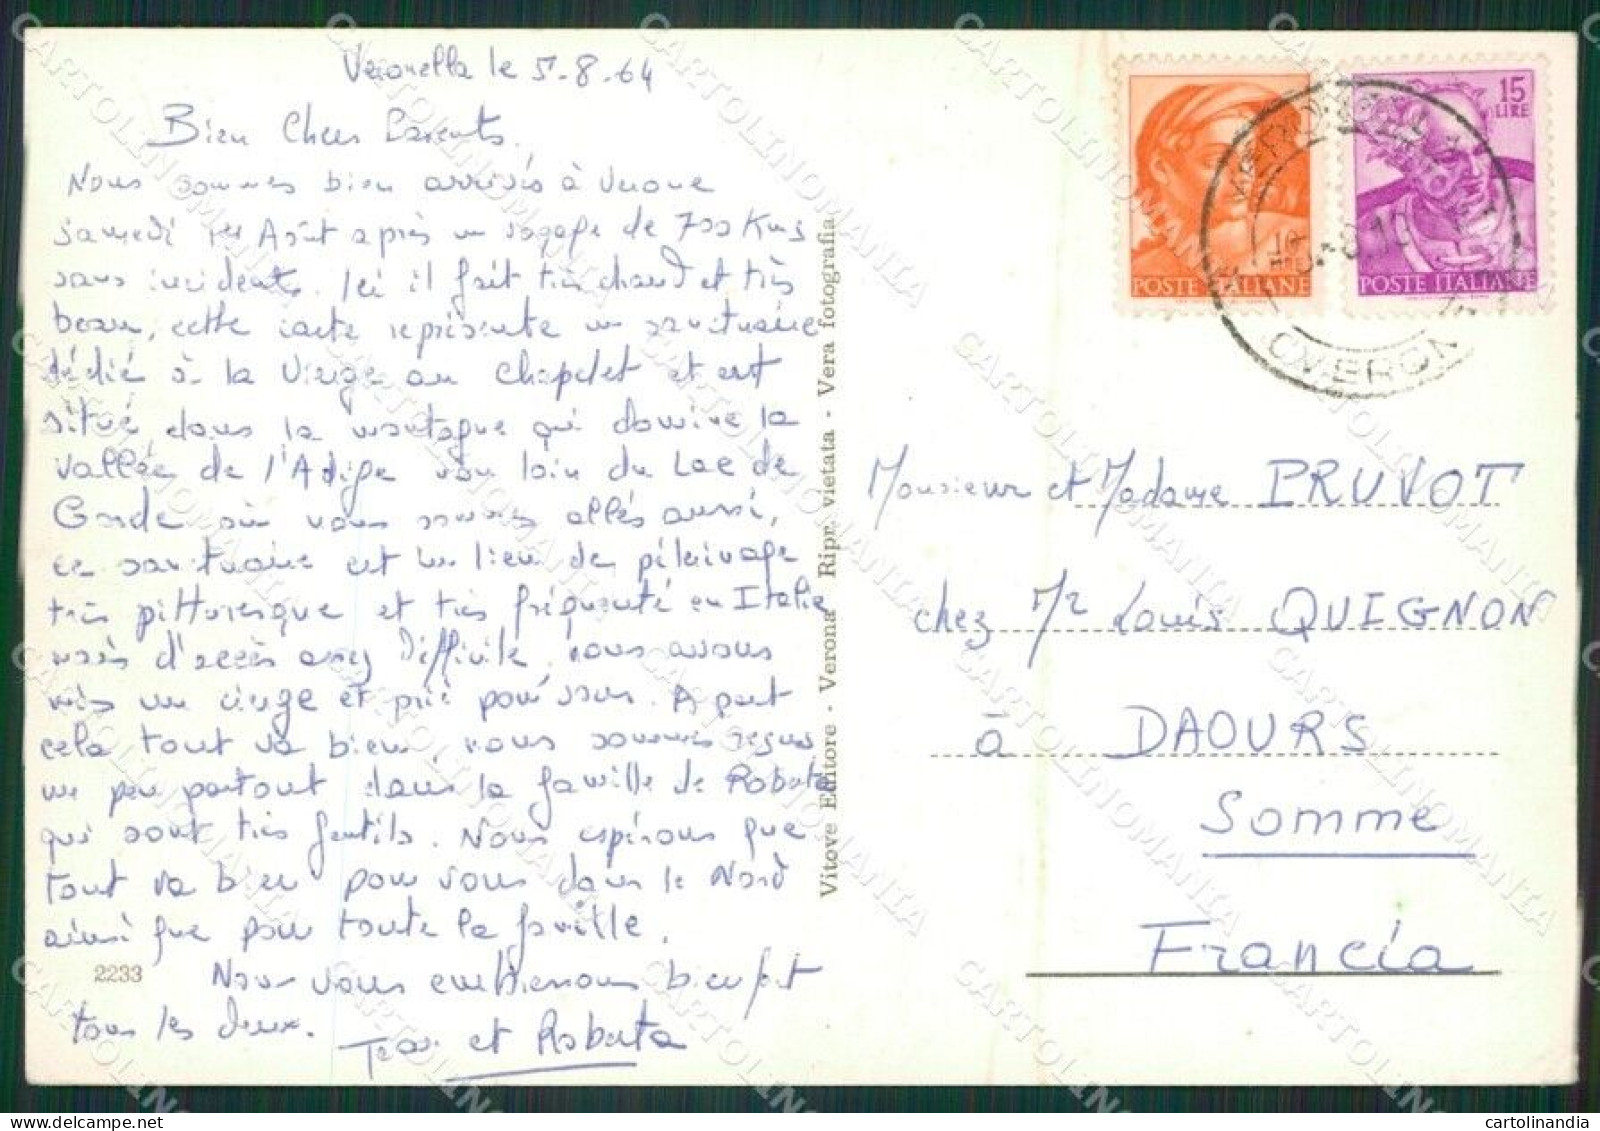 Veronella le 5-8-64
Bien Chers Parents.
Nous sommes bien arrivés à Verone
samedi 1er Août après un voyage de 700 Kms
sans incidents. Ici il fait très chaud et très
beau, cette carte représente un sanctuaire
dédié à la Vierge au Chapelet et est
situé dans la montagne qui domine la
vallée de l'Adige non loin du Lac de
Garde où nous sommes allés aussi,
ce sanctuaire est un lieu de pélerinage
très pittoresque et très fréquenté en Italie
mais d'accès assez difficile, nous avons
mis un cierge et prié pour vous. A part
cela tout va bien nous sommes reçus
un peu partout dans la famille de Roberta
qui sont très gentils. Nous espérons que
tout va bien pour vous dans le Nord
ainsi que pour toute la famille.
Nous vous embrassons bien fort
tous les deux.
et Roberta
2233
Vitove Editore - Verona - Ripr. vietata - Vera fotografia
POSTE ITALIANE
15 LIRE
POSTE ITALIANE
Monsieur et Madame PRUVOT
chez Mr Louis QUIGNON
à DAOURS
Somme
Francia
CARTOLINOMANIA
cartolinandia